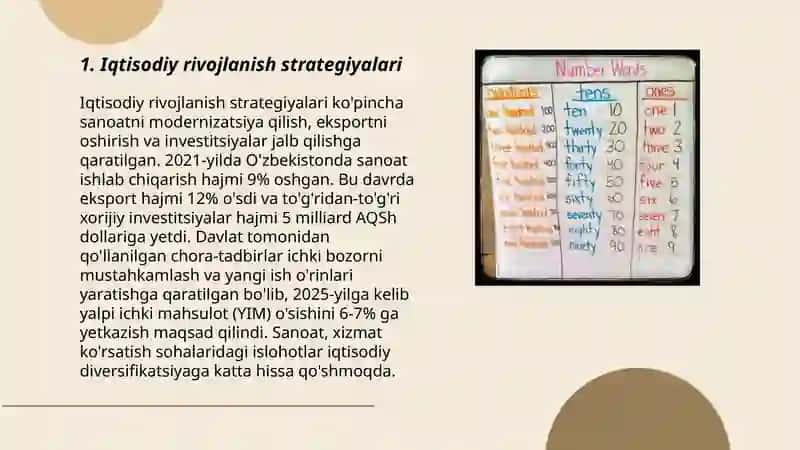 1. Iqtisodiy rivojlanish strategiyalari
Iqtisodiy rivojlanish strategiyalari ko'pincha
sanoatni modernizatsiya qilish, eksportni
oshirish va investitsiyalar jalb qilishga
qaratilgan. 2021-yilda O'zbekistonda sanoat
ishlab chiqarish hajmi 9% oshgan. Bu davrda
eksport hajmi 12% o'sdi va to'g'ridan-to'g'ri
xorijiy investitsiyalar hajmi 5 milliard AQSh
dollariga yetdi. Davlat tomonidan
qo'llanilgan chora-tadbirlar ichki bozorni
mustahkamlash va yangi ish o'rinlari
yaratishga qaratilgan bo'lib, 2025-yilga kelib
yalpi ichki mahsulot (YIM) o'sishini 6-7% ga
yetkazish maqsad qilindi. Sanoat, xizmat
ko'rsatish sohalaridagi islohotlar iqtisodiy
diversifikatsiyaga katta hissa qo'shmoqda.
Number Words
tens ones
hundred 100 ten 10 one 1
hundred 200 twenty 20 two 2
three hundred thirty 30 three 3
hundred forty 40 four 4
hundred fifty 50 five 5
hundred sixty 60 six 6
seventy 70 seven 7
eighty 80 8
ninety 90 9